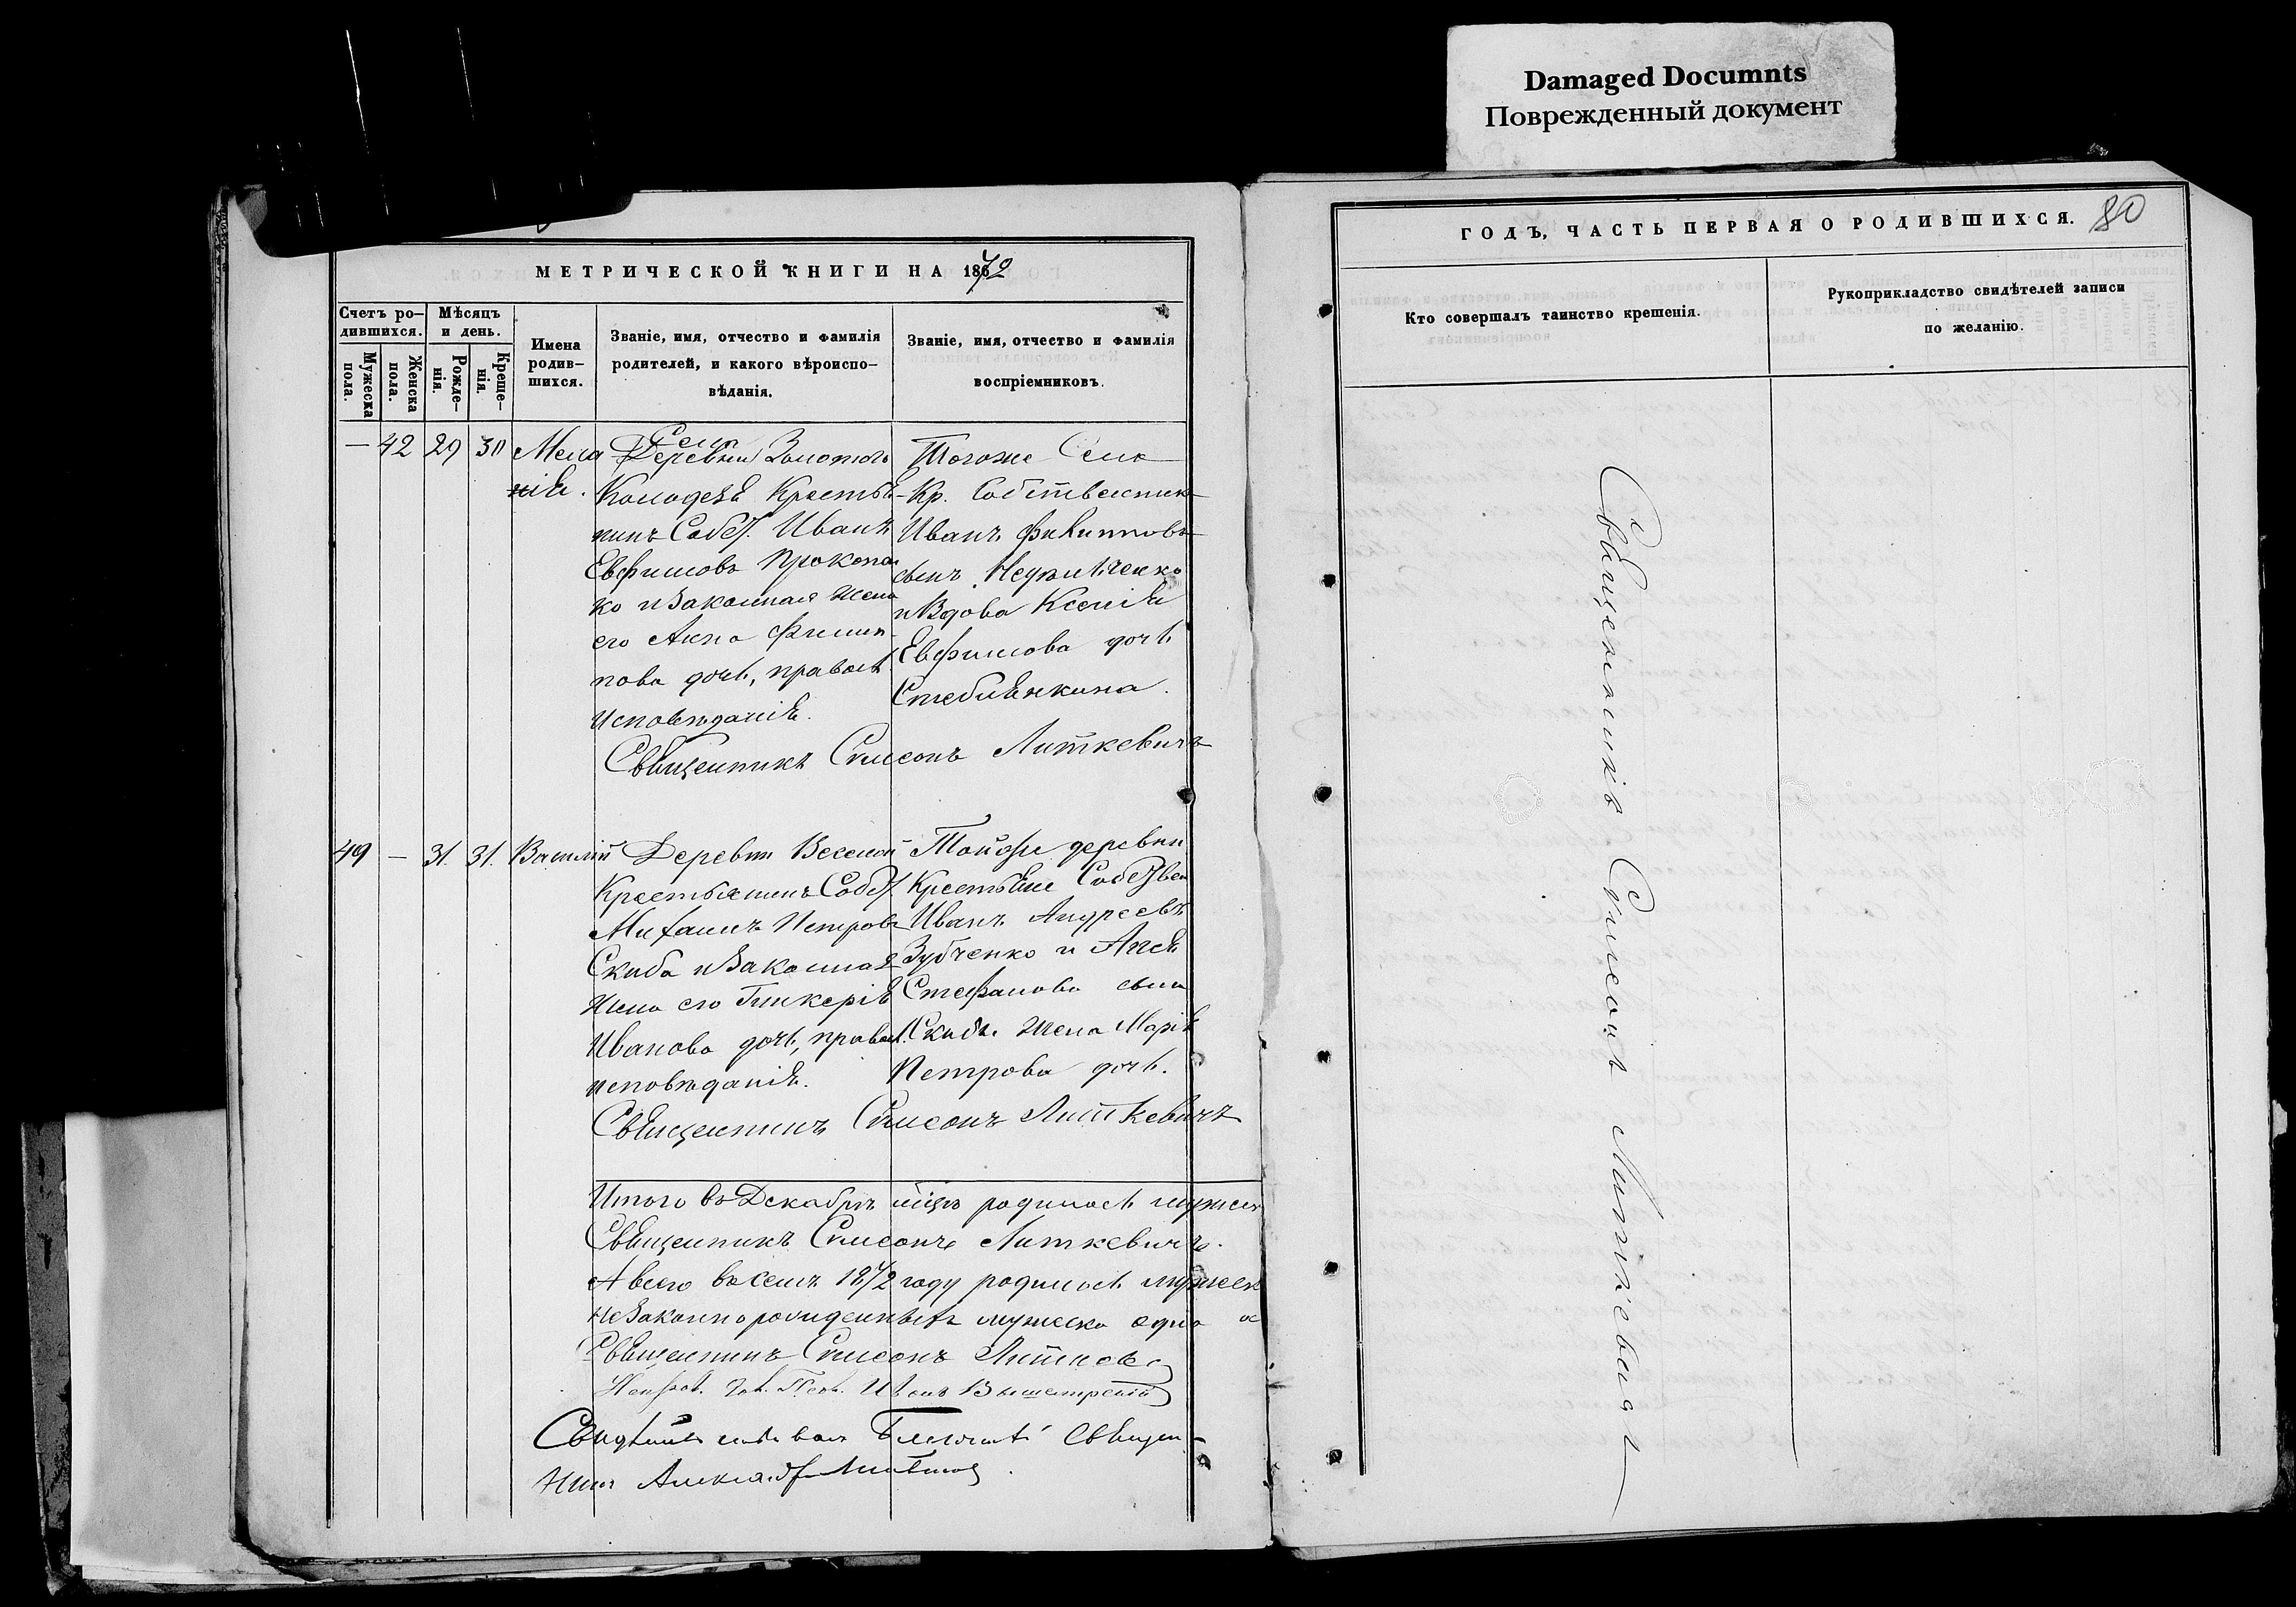 Damaged Documnts
Поврежденный документ
МЕТРИЧЕСКОЙ КНИГИ НА 1872
Счетъ ро-
дившихся.
Мужеска
пола.
Женска
пола.
Мѣсяцъ
и день.
Рожде-
нія.
Креще-
нія.
Имена
родив-
шихся.
Званіе, имя, отчество и фамилія
родителей, и какого вѣроиспо-
вѣданія.
Званіе, имя, отчество и фамилія
воспріемниковъ.
— 42 29 30
Мела
нія.
Села
Деревни Золотого
Колодезя Крестья-
нинъ Собст. Иванъ
Евфимовъ Прокопен
ко и Законная жена
его Анна Филип-
пова дочь, правосл
исповѣданія.
Тогоже Села
Кр. Собственник
Иванъ Филипповъ
сынъ
и Вдова Ксенія
Евфимова дочь
Стеблянкина.
Священникъ Симеонъ Литкевичъ
49 — 31. 31.
Василій
Деревни Веселой
Крестьянинъ Собст
Михаилъ Петровъ
Скиба и Законная
Жена его Гликерія
Иванова дочь, правосл.
исповѣданія.
Тойже деревни
Крестьяне Собствен
Иванъ Андреевъ
Зубченко и
Стефанова сына
Скибы Жена Марія
Петрова дочь.
Священникъ Симеонъ Литкевичъ
Итого въ Декабрѣ мцѣ родилось мужеск
Священникъ Симеонъ Литкевичъ.
А всего въ семъ 1872 году родилось мужеск
Незаконнорожденныхъ мужеска одно
Священникъ Симеонъ
Иванъ
Священ-
никъ
ГОДЪ, ЧАСТЬ ПЕРВАЯ О РОДИВШИХСЯ. 80
Кто совершалъ таинство крешенія.
Рукоприкладство свидѣтелей записи
по желанію.
Священникъ Симеонъ Литкевичъ